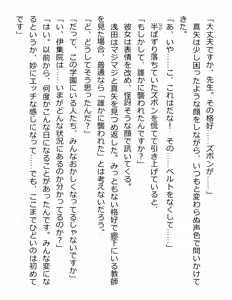 「大丈夫ですか、先生。その格好……ズボンが……」
真矢は少し困ったような顔をしながら、いつもと変わらぬ声色で問いかけて
きた。
「あ、いや……こ、これはだな！　その……ベルトをなくして……」
半ばずり落ちていたズボンを慌てて引き上げていると、
彼女は表情を改め、怪訝そうな顔で訊いてくる。
「もしかして、誰かに襲われたんですか？」
浅田はマジマジと真矢を見つめ返した。みっともない格好で廊下にいる教師
を見た場合、普通なら「誰かに襲われた」とは考えないだろう。
「ど、どうしてそう思ったんだ？」
「だって、この学園にいる人たち、みんなおかしくなってるじゃないですか」
「い、伊集院は……いまがどんな状況にあるのか分かってるのか？」
「はい。以前から、何度かこんな日になることがあったんです。みんな変にな
るというか、妙にエッチな感じになって……でも、ここまでひどいのは初めて
です」